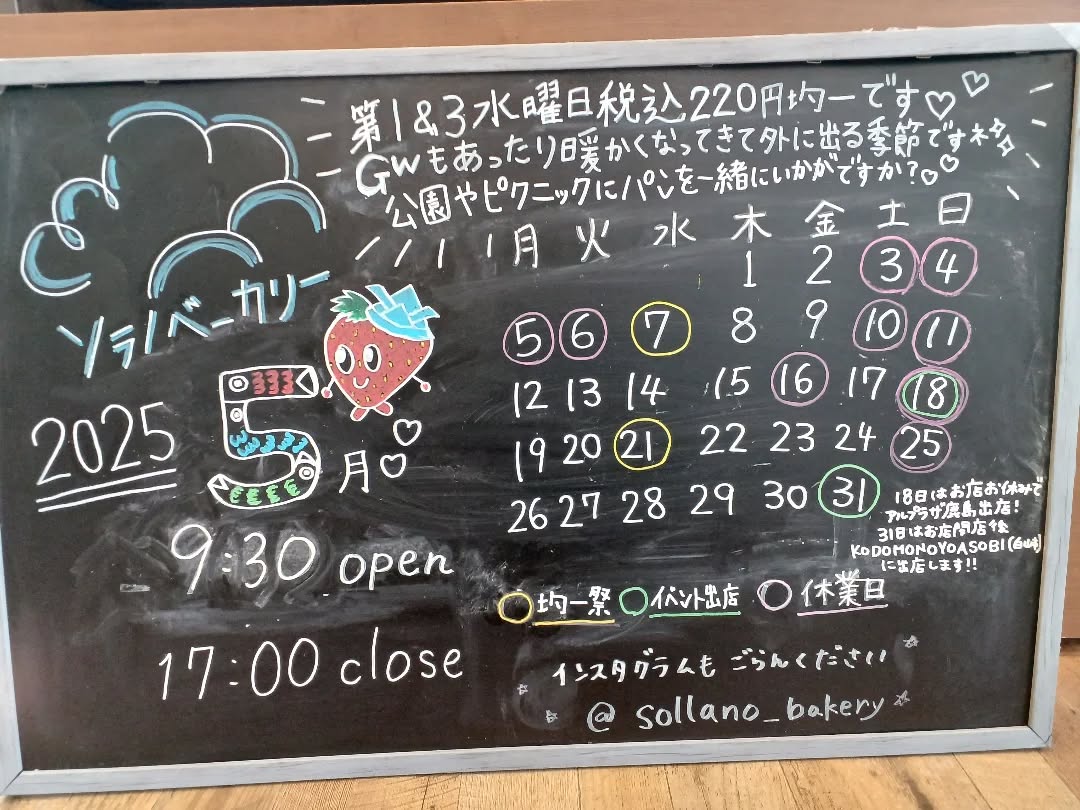 第1&3水曜日税込220円均一です♡♡
GWもあったり暖かくなってきて外に出る季節ですネ
公園やピクニックにパンを一緒にいかがですか?♡♡
ソラノベーカリー
2025
5月
月 火 水 木 金 土 日
1 2 3 4
5 6 7 8 9 10 11
12 13 14 15 16 17 18
19 20 21 22 23 24 25
26 27 28 29 30 31
18日はお店お休みで
アルプラザ鹿島出店!
31日はお店閉店後
KODOMONOYOASOBI(白山市)
に出店します!!
9:30 open
17:00 close
均一祭 イベント出店 休業日
インスタグラムも ごらんください
@ sollano_bakery